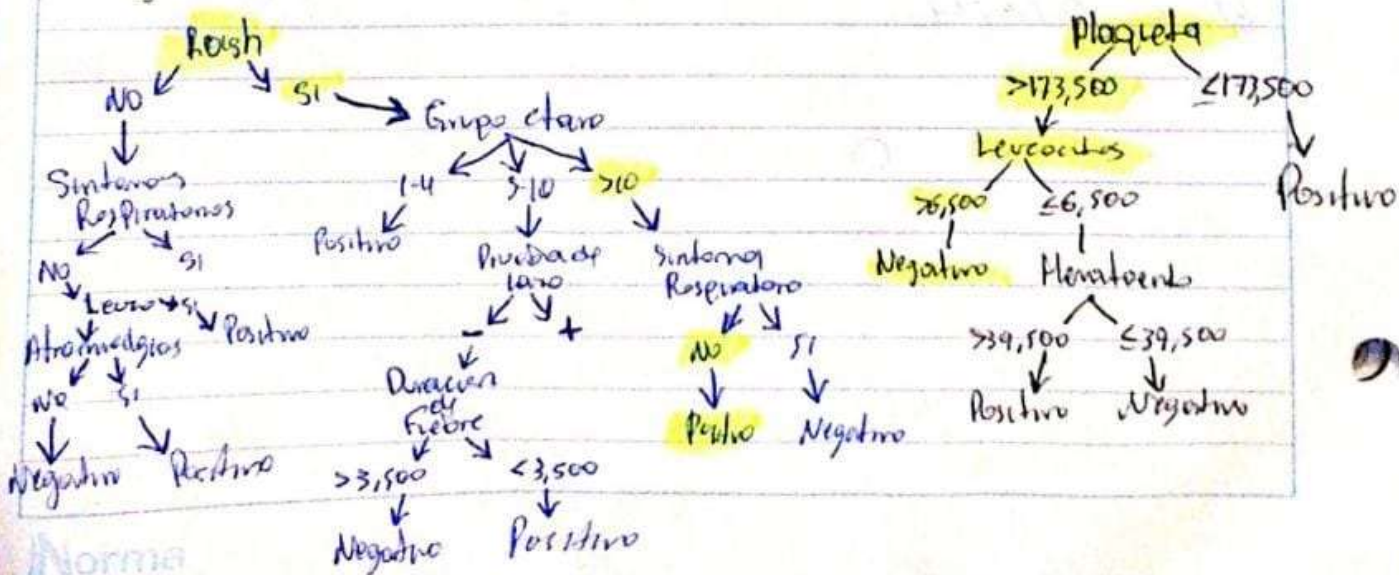 Rash
NO
SI
Grupo etareo
Sintomas
Respiratorios
1-4
5-10
>10
Positivo
Prueba de
lazo
Sintoma
Respiratorio
NO
SI
Leuco
SI
Positivo
-
+
NO
SI
NO
SI
Duracion
de
Fiebre
Positivo
Negativo
Negativo
Positivo
>3,500
<3,500
Negativo
Positivo
Plaqueta
>173,500
≤173,500
Leucocitos
Positivo
>6,500
≤6,500
Negativo
Hematocrito
>39,500
≤39,500
Positivo
Negativo
Norma